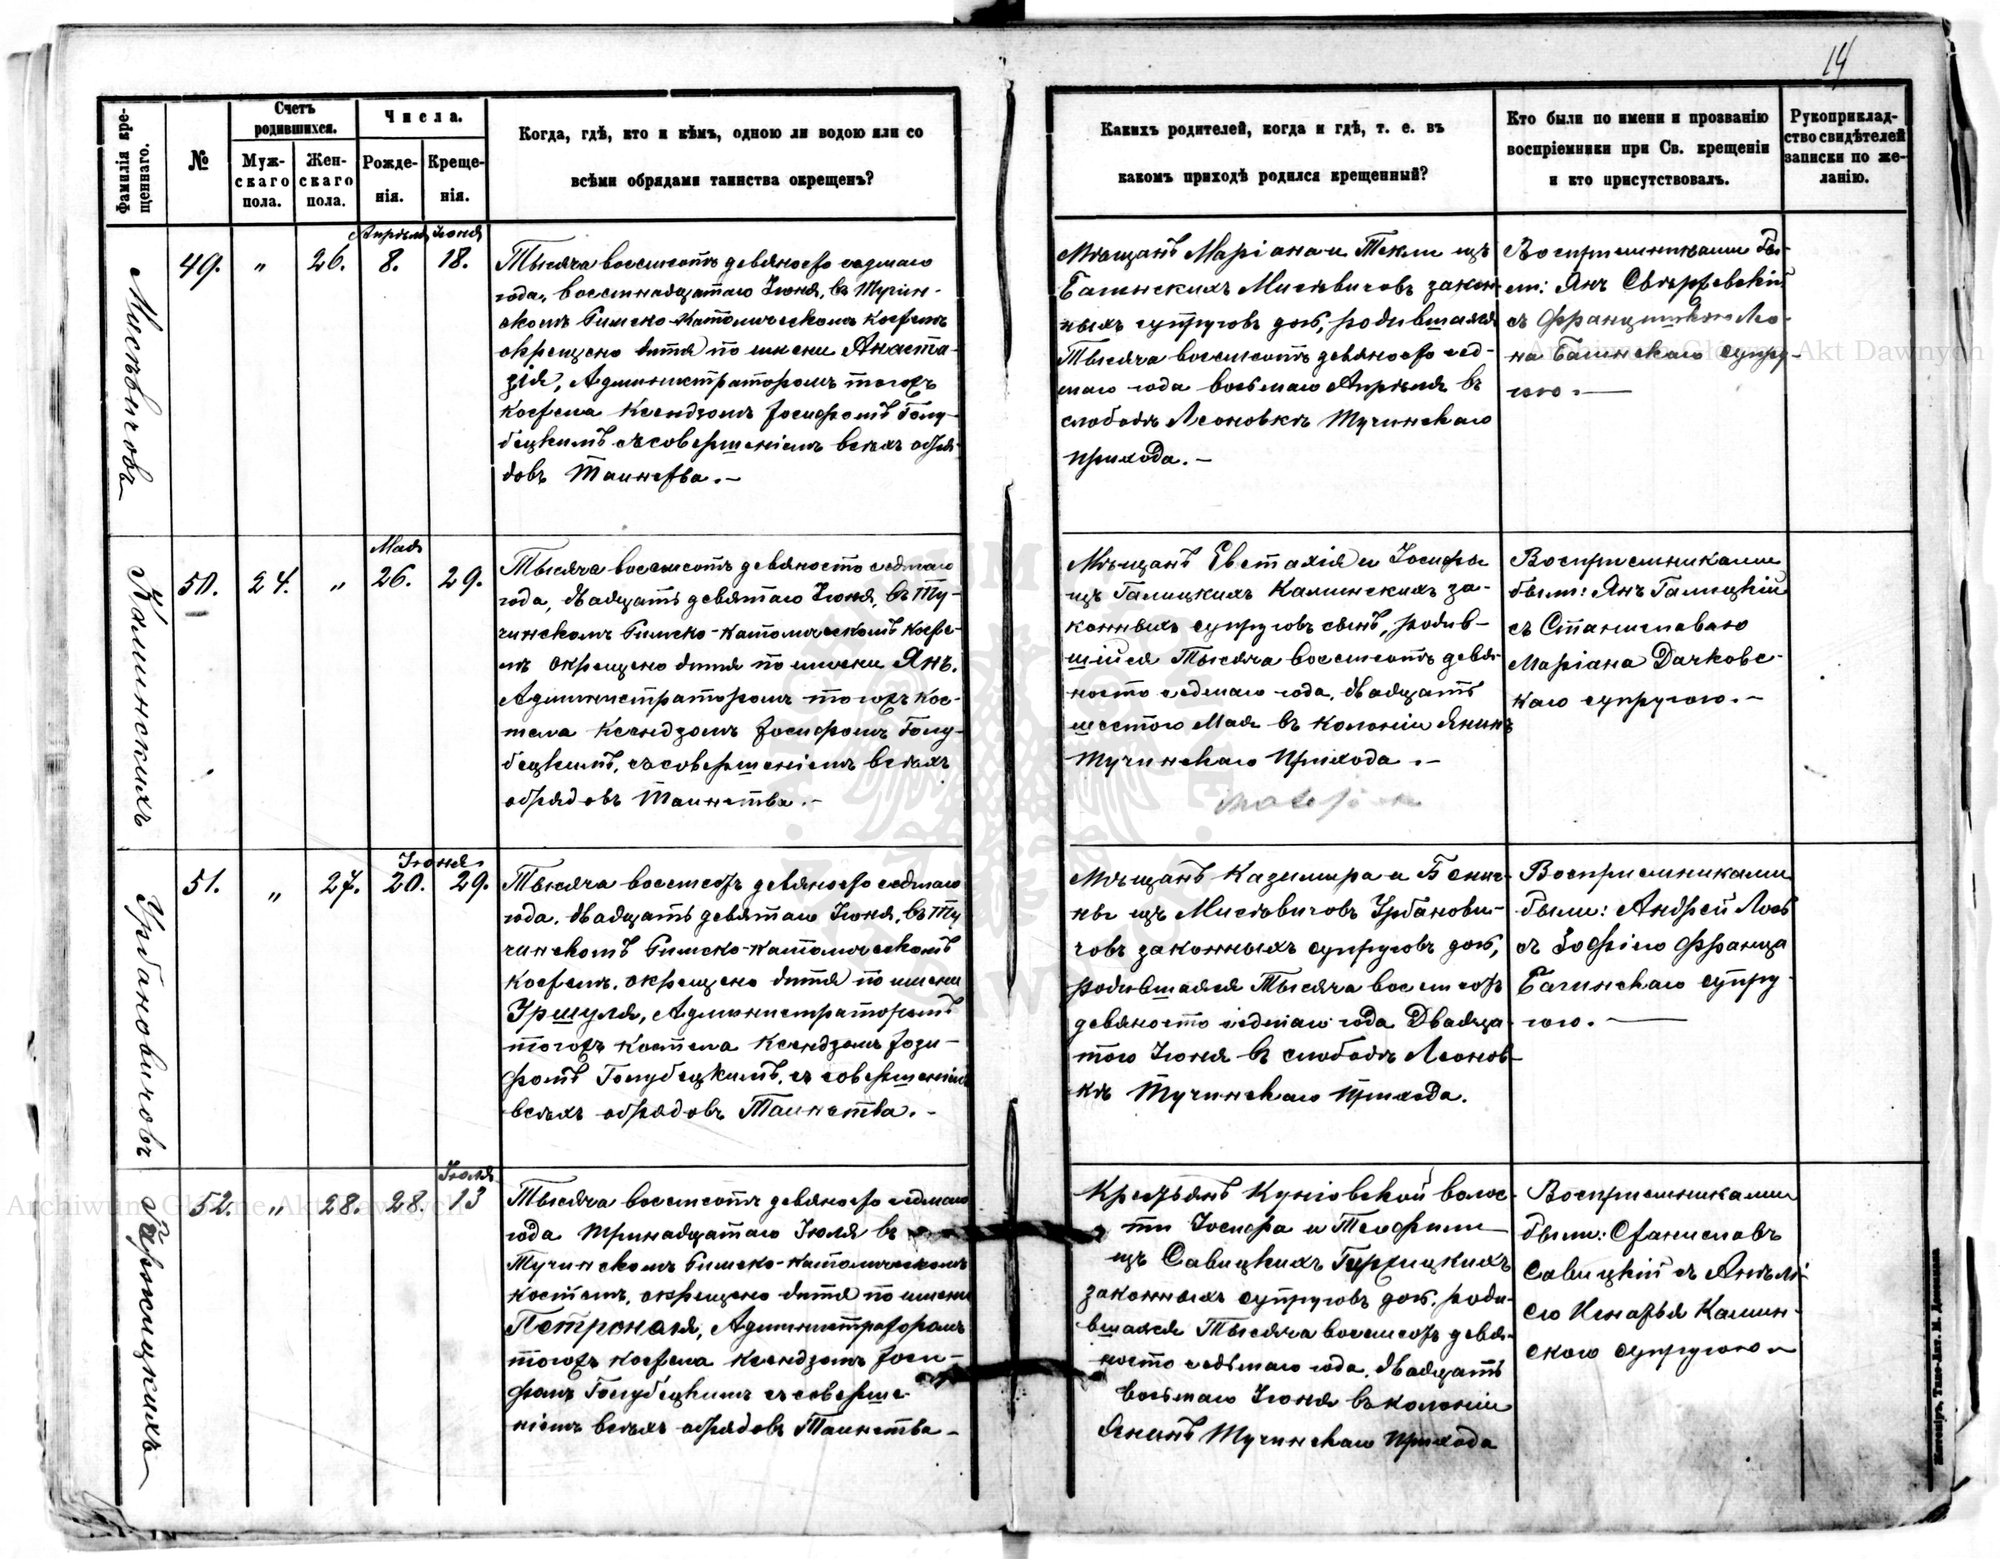 14
Фамилія кре-
щеннаго.
№
Счетъ
родившихся.
Муж-
скаго
пола.
Жен-
скаго
пола.
Числа.
Рожде-
нія.
Креще-
нія.
Когда, гдѣ, кто и кѣмъ, одною ли водою или со
всѣми обрядами таинства окрещенъ?
Каких родителей, когда и гдѣ, т. е. въ
какомъ приходѣ родился крещенный?
Кто были по имени и прозванію
воспріемники при Св. крещеніи
и кто присутствовалъ.
Рукоприклад-
ство свидѣтелей
записки по же-
ланію.
Мисѣвичовъ
49.
"
26.
Апрѣля
8.
Іюня
18.
Тысяча восемсотъ девяносто седмаго
года, восемнадцатаго Іюня, въ Тучин-
скомъ Римско-Католическомъ костелѣ
окрещено дитя по имени Анаста-
зія, Администраторомъ тогожъ
костела Ксендзомъ Іосифомъ Голу-
бецкимъ съ совершеніемъ всѣхъ обря-
довъ Таинства. -
Мѣщанъ Маріана и Текли изъ
Багинскихъ Мисѣвичовъ закон-
ныхъ супруговъ дочь, родившаяся
Тысяча восемсотъ девяносто сед-
маго года восьмаго Апрѣля въ
слободѣ Леоновкѣ Тучинскаго
прихода. -
Воспріемниками бы-
ли: Янъ Свѣржевскій
съ Францишкою Ло-
на Багинскаго супру-
гою. -
Калинскихъ
50.
24.
"
Мая
26.
29.
Тысяча восемсотъ девяносто седмаго
года, двадцать девятаго Іюня, въ Ту-
чинскомъ Римско-Католическомъ косте-
лѣ окрещено дитя по имени Янъ.
Администраторомъ тогожъ кос-
тела Ксендзомъ Іосифомъ Голу-
бецкимъ, съ совершеніемъ всѣхъ
обрядовъ Таинства. -
Мѣщанъ Евстахія и Іосифы
изъ Галицкихъ Калинскихъ за-
конныхъ супруговъ сынъ, родив-
шійся Тысяча восемсотъ девя-
носто седмаго года, двадцать
шестого Мая въ колоніи Янинъ
Тучинскаго Прихода. -
Воспріемниками
были: Янъ Галицкій
съ Станиславою
Маріана Дачковс-
каго супругою. -
Урбановичовъ
51.
"
27.
Іюня
20.
29.
Тысяча восемсотъ девяносто седмаго
года, двадцать девятаго Іюня, въ Ту
чинскомъ Римско-Католическомъ
костелѣ, окрещено дитя по имени
Уршуля, Администраторомъ
тогожъ костела Ксендзомъ Іози-
фомъ Голубецкимъ, съ совершеніемъ
всѣхъ обрядовъ Таинства. -
Мѣщанъ Казимира и Бениг-
ны изъ Мисѣвичовъ Урбанови-
човъ законныхъ супруговъ дочь,
родившаяся Тысяча восемсотъ
девяносто седмаго года Двадца-
того Іюня въ слободѣ Леонов-
кѣ Тучинскаго Прихода.
Воспріемниками
были: Андрей Лось
съ Зофіею Францa
Багинскаго супру-
гою. -
52.
"
28.
28.
Іюля
13
Тысяча восемсотъ девяносто седмаго
года тринадцатаго Іюля въ
Тучинскомъ Римско-Католическомъ
костелѣ, окрещено дитя по имени
Петронеля, Администраторомъ
тогожъ костела Ксендзомъ Іоси-
фомъ Голубецкимъ съ соверше
ніемъ всѣхъ обрядовъ Таинства -
Крестьянъ Куніовской волос-
ти Іосифа и Теофили
изъ Савицкихъ
законныхъ супруговъ дочь, роди-
вшаяся Тысяча восемсотъ девя-
носто седьмаго года, двадцать
восьмаго Іюня въ колоніи
Янинъ Тучинскаго Прихода
Воспріемниками
были: Станиславъ
Савицкій съ Анѣлі-
ею Калин-
ского супругою -
Житоміръ, Типо-Лит. М. Дененмана
Archiwum Główne Akt Dawnych
Archiwum Główne Akt Dawnych